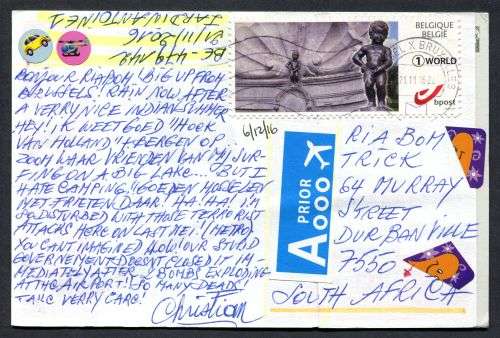 JARDIN ANTOINE 1
2/11/2016
BE-419142
BONJOUR RIABOM! BIG UP FROM
BRUSSELS! RAIN NOW AFTER
A VERRY NICE INDIAN SUMMER
HEY! IK WEET GOED "HOEK
VAN HOLLAND" & BERGEN OP
ZOOM WAAR VRIENDEN VAN MIJ SUR-
FING ON A BIG LAKE... BUT I
HATE CAMPING. GOEDEN MOSSELEN
MET FRIETEN DAAR! HA! HA! I'M
SO DISTURBED WITH THOSE TERRORIST
ATTACKS HERE ON LAST MEI! (METRO)
YOU CANT IMAGINED NOW! OUR STUPID
GOVERNEMENT DOESN'T CLOSED IT IM-
MEDIATELY AFTER BOMBS EXPLODING
AT THE AIRPORT! SO MANY DEADS!
TAKE VERRY CARE!
Christian
BELGIQUE
BELGIË
1 WORLD
bpost
X BRU
6/12/16
A PRIOR
RIA BOM
TRICK
64 MURRAY
STREET
DURBANVILLE
7550
SOUTH AFRICA